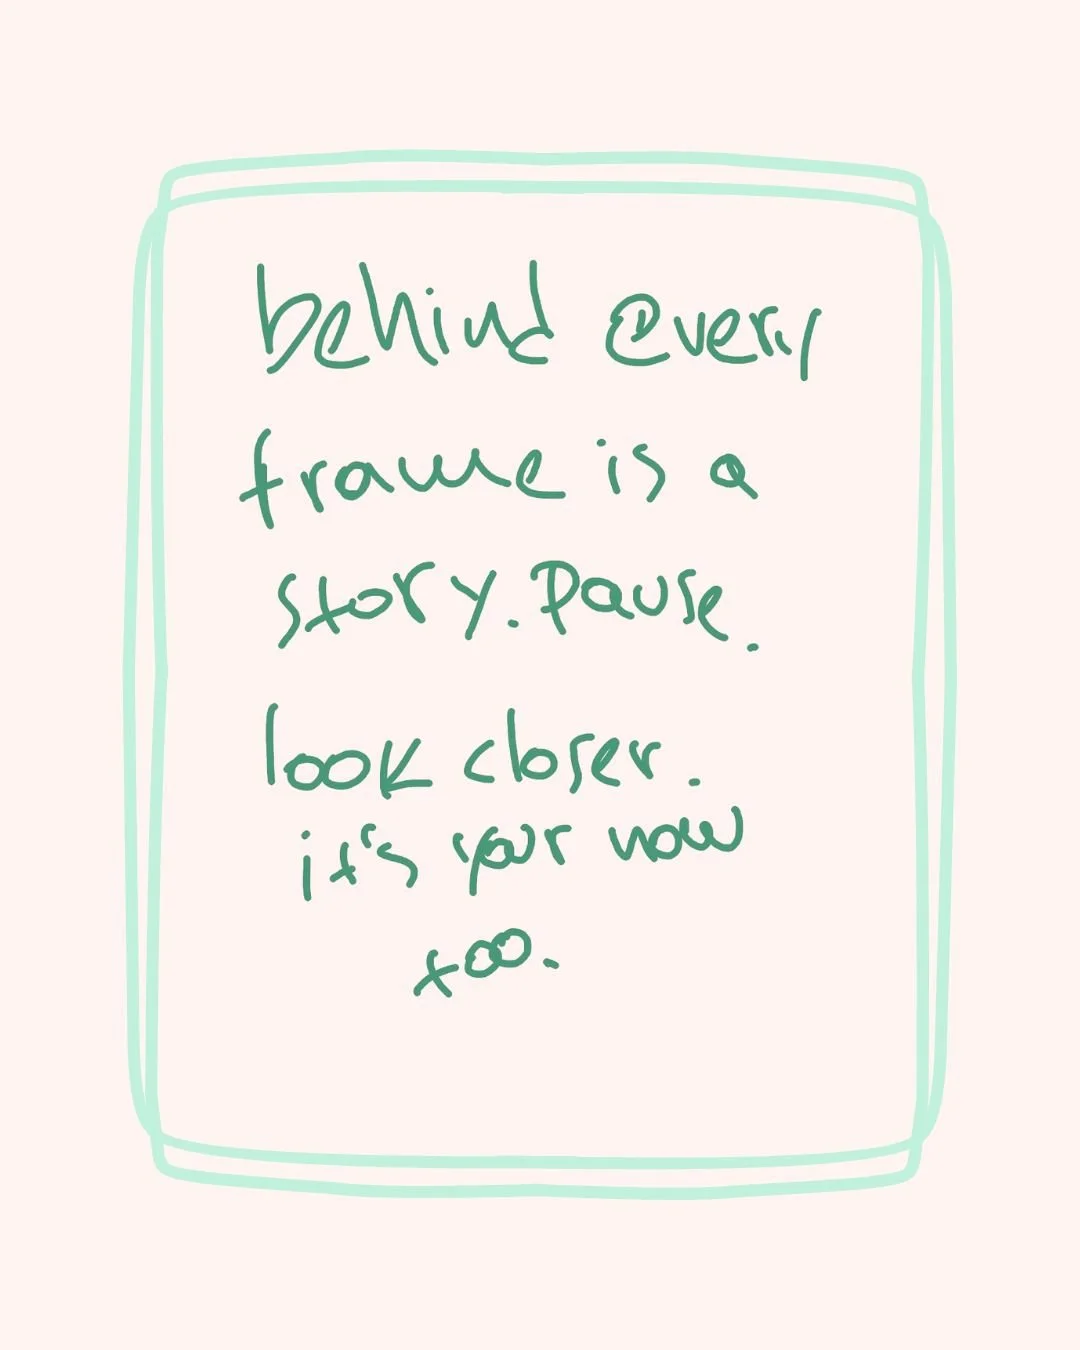 behind every
frame is a
story. Pause.
look closer.
it's your now
too.